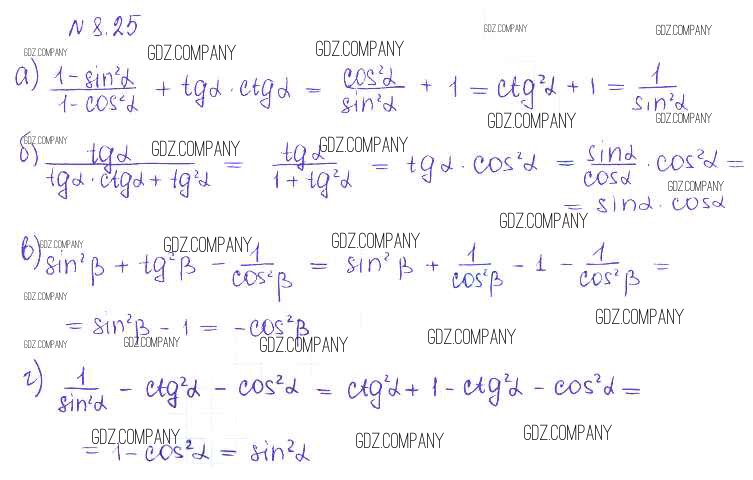 N 8.25
GDZ.COMPANY GDZ.COMPANY GDZ.COMPANY GDZ.COMPANY GDZ.COMPANY
а) (1-sin²α)/(1-cos²α) + tgα·ctgα = cos²α/sin²α + 1 = ctg²α + 1 = 1/sin²α
GDZ.COMPANY GDZ.COMPANY
GDZ.COMPANY GDZ.COMPANY GDZ.COMPANY
б) tgα/(tgα·ctgα + tg²α) = tgα/(1 + tg²α) = tgα·cos²α = sinα/cosα · cos²α =
GDZ.COMPANY
= sinα·cosα
GDZ.COMPANY
GDZ.COMPANY GDZ.COMPANY GDZ.COMPANY
в) sin²β + tg²β - 1/cos²β = sin²β + 1/cos²β - 1 - 1/cos²β =
GDZ.COMPANY GDZ.COMPANY
= sin²β - 1 = -cos²β
GDZ.COMPANY GDZ.COMPANY GDZ.COMPANY GDZ.COMPANY
г) 1/sin²α - ctg²α - cos²α = ctg²α + 1 - ctg²α - cos²α =
GDZ.COMPANY GDZ.COMPANY GDZ.COMPANY
= 1 - cos²α = sin²α